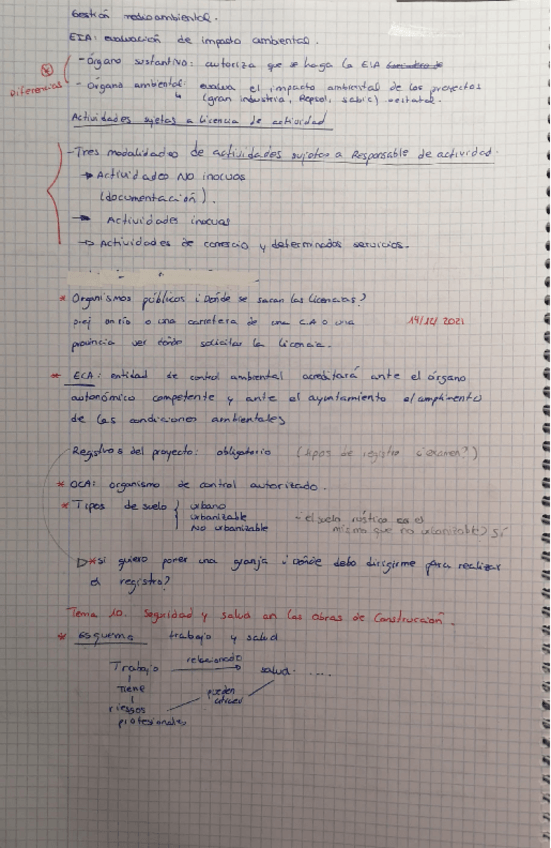 Gestión medioambiental.
EIA: evaluación de impacto ambiental.
- Órgano sustantivo: autoriza que se haga la EIA
Diferencias
- Órgano ambiental: evalua el impacto ambiental de los proyectos
(gran industria, Repsol, sabic) estatal.
Actividades sujetas a Licencia de actividad
- Tres modalidades de actividades sujetas a Responsable de actividad.
→ Actividades NO inocuas
(documentación).
→ Actividades inocuas
→ Actividades de comercio y determinados servicios.
* Organismos públicos ¿Dónde se sacan las licencias?
p.ej un río o una carretera de una C.A o una
14/12/2021
provincia ver dónde solicitar la licencia.
* ECA: entidad de control ambiental acreditará ante el órgano
autonómico competente y ante el ayuntamiento el cumplimiento
de las condiciones ambientales
Registros del proyecto: obligatorio (tipos de registro ¿examen?)
* OCA: organismo de control autorizado.
* Tipos de suelo { urbano
urbanizable
NO urbanizable
- el suelo rústico es el
mismo que no urbanizable? Sí
* si quiero poner una granja ¿Dónde debo dirigirme para realizar
el registro?
Tema 10. Seguridad y salud en las obras de Construcción.
* esquema trabajo y salud
Trabajo relacionado salud.....
tiene
pueden
riesgos
profesionales